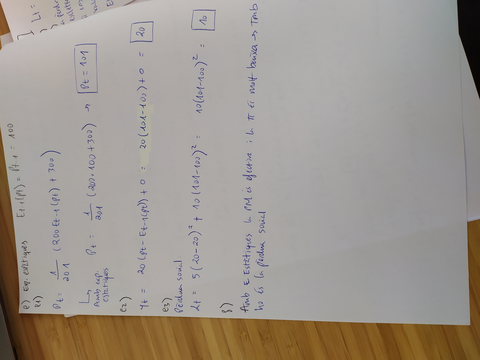 e) Exp. estàtiques Et-1(pt) = Pt-1 = 100
e1)
Pt = 1/201 (200 Et-1(pt) + 300)
↳ Amb exp. estàtiques Pt = 1/201 (200·100 + 300) → Pt = 101
e2)
Yt = 20(pt - Et-1(pt)) + 0 = 20(101-100) + 0 = 20
e3)
Pèrdua social
Lt = 5(20-20)² + 10(101-100)² = 10(101-100)² = 10
f)
Amb E estàtiques la PM és efectiva i la π és molt baixa → Tmb
ho és la pèrdua social